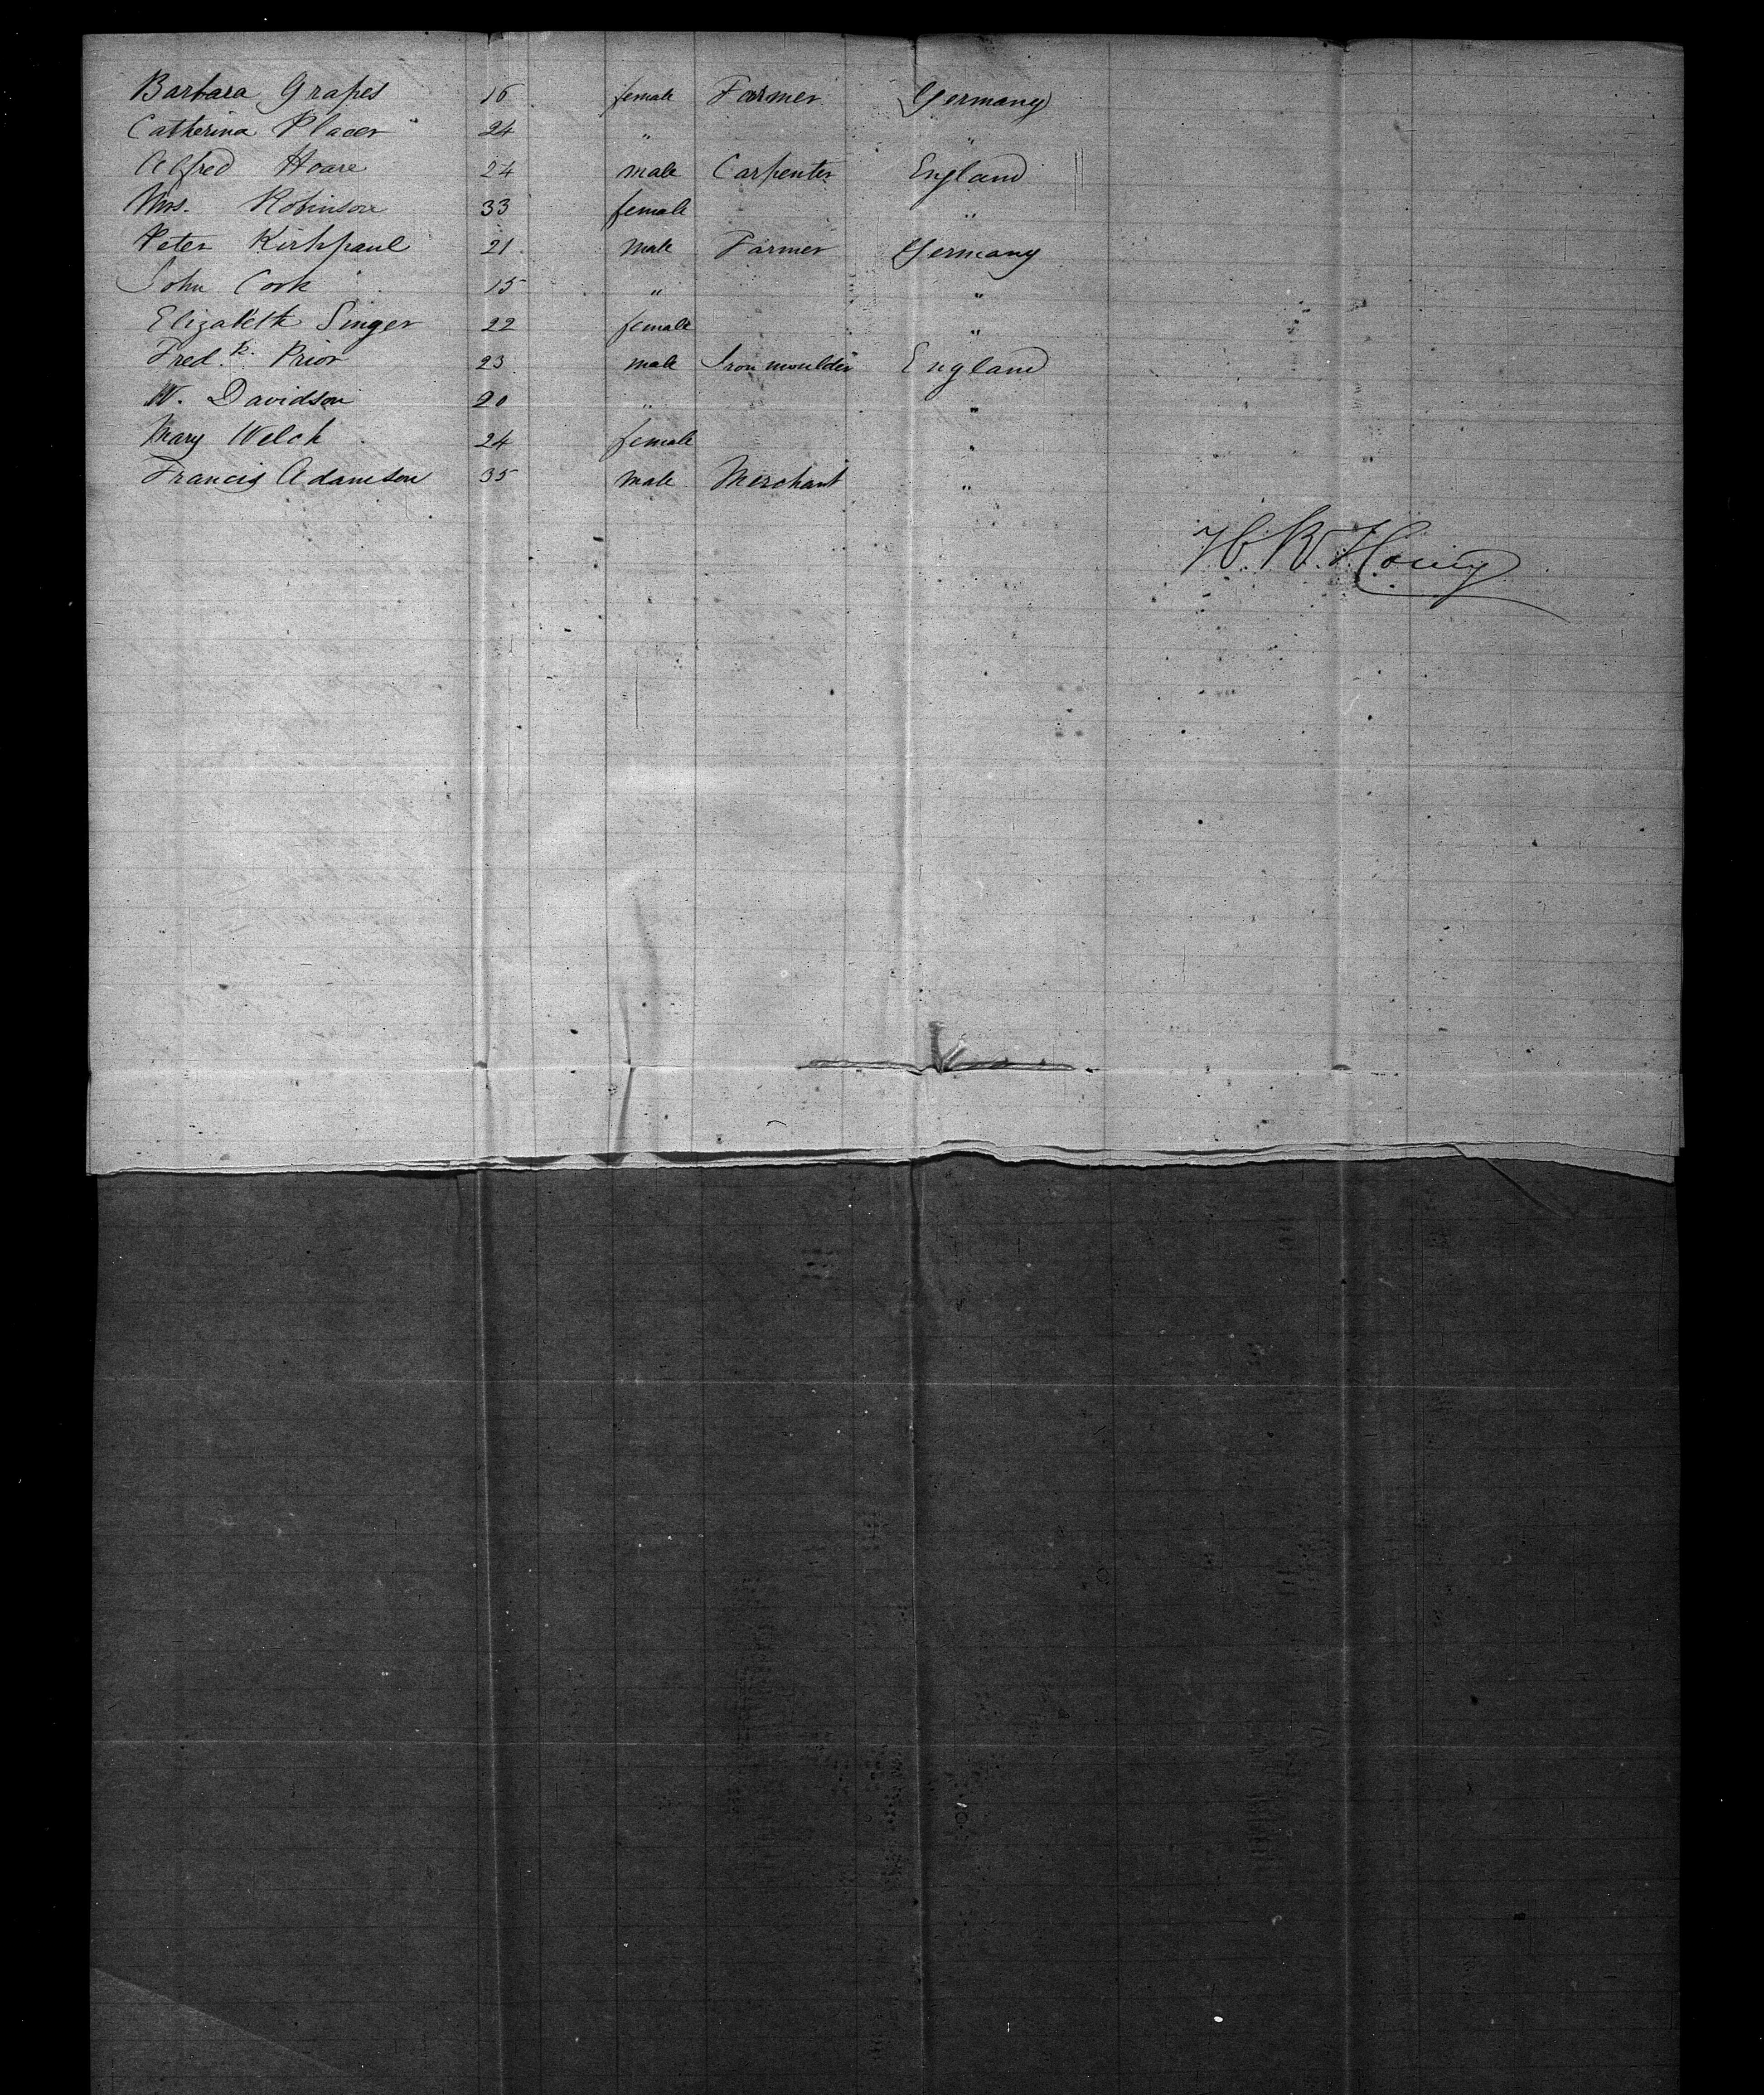 Barbara Grapes 16 female Farmer Germany
Catherina Placer 24 " "
Alfred Hoare 24 male Carpenter England
Mrs. Robinson 33 female "
Peter Kirkpaul 21 male Farmer Germany
John Cook 15 " "
Elizabeth Singer 22 female "
Fred.k. Prior 23 male Iron moulder England
W. Davidson 20 " "
Mary Welch 24 female "
Francis Adamson 35 male Merchant "
H. W.